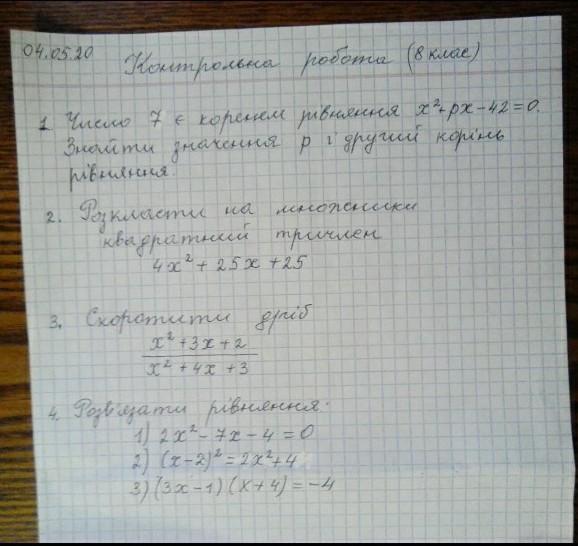 04.05.20
Контрольна робота (8 клас)
1. Число 7 є коренем рівняння x²+px-42=0.
Знайти значення p і другий корінь
рівняння.
2. Розкласти на множники
квадратний тричлен
4x²+25x+25
3. Скоротити дріб
x²+3x+2
x²+4x+3
4. Розв'язати рівняння:
1) 2x²-7x-4=0
2) (x-2)²=2x²+4
3) (3x-1)(x+4)=-4